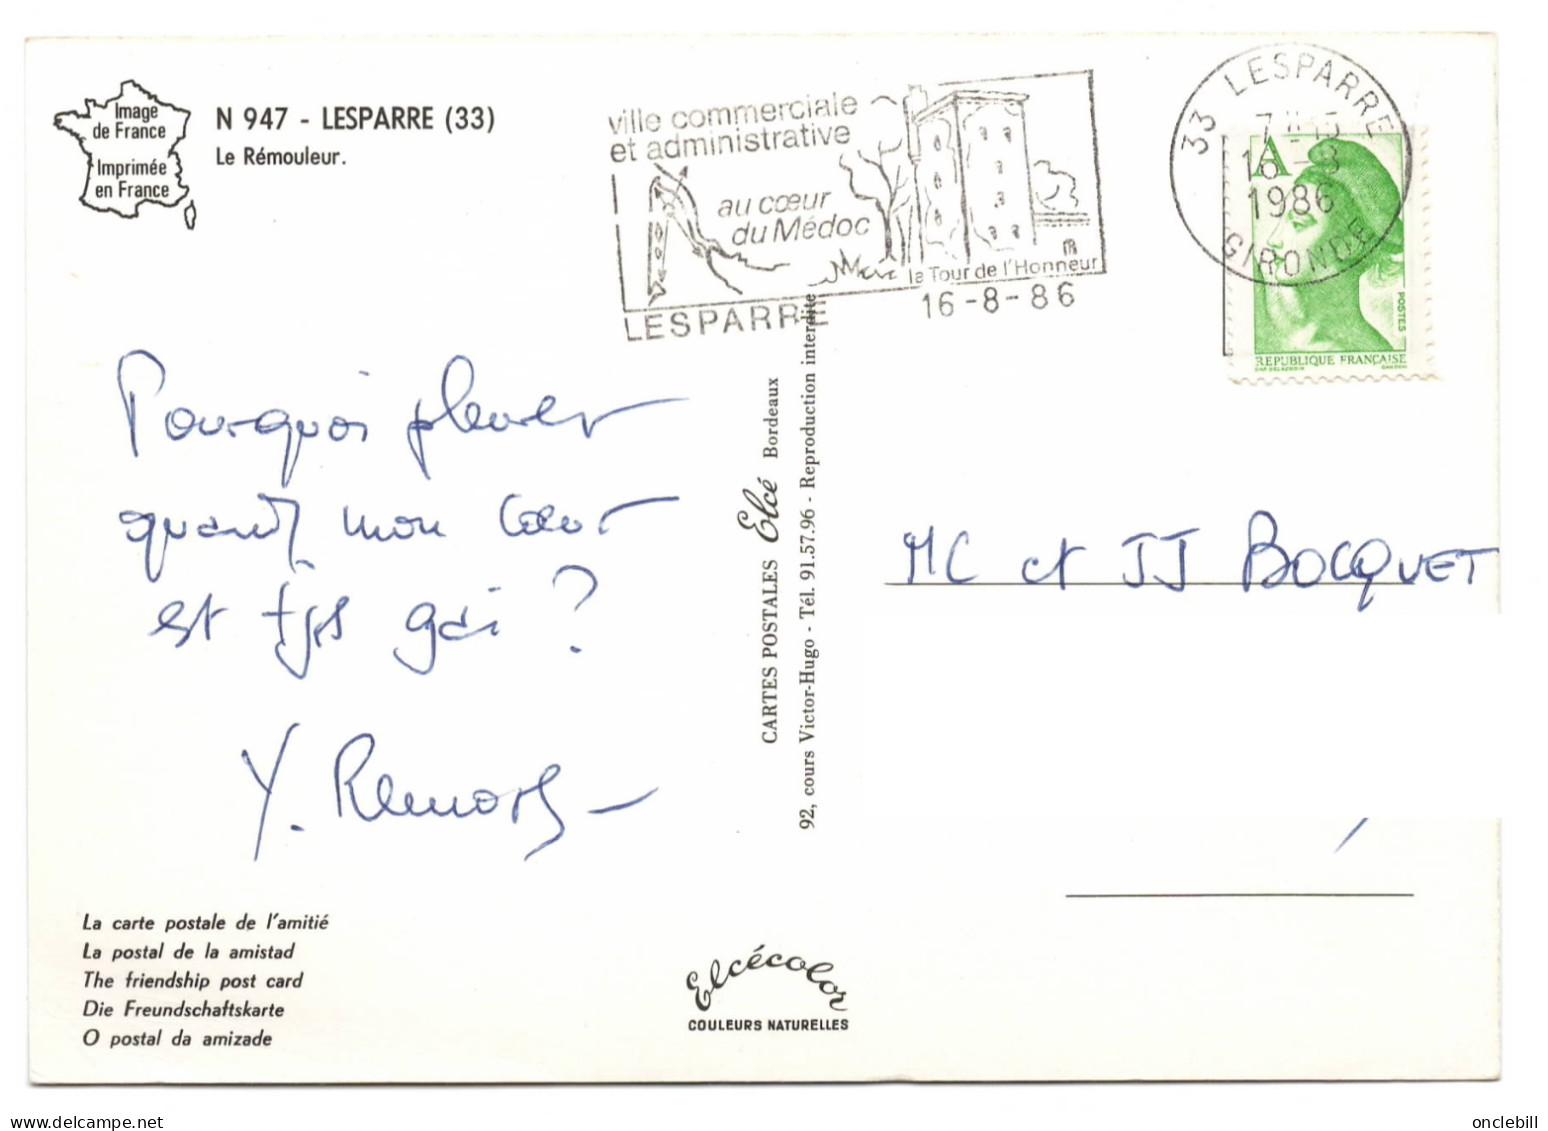 Image
de France
Imprimée
en France
N 947 - LESPARRE (33)
Le Rémouleur.
ville commerciale
et administrative
au cœur
du Médoc
la Tour de l'Honneur
LESPARRE
16-8-86
33 LESPARRE
16-8
1986
GIRONDE
A
POSTES
REPUBLIQUE FRANÇAISE
Pourquoi pleurer
quand mon cœur
est tjrs gai ?
Y.
CARTES POSTALES Elcé Bordeaux
92, cours Victor-Hugo - Tél. 91.57.96 - Reproduction interdite
MC et JJ BOCQUET
La carte postale de l'amitié
La postal de la amistad
The friendship post card
Die Freundschaftskarte
O postal da amizade
Elcécolor
COULEURS NATURELLES
onclebill